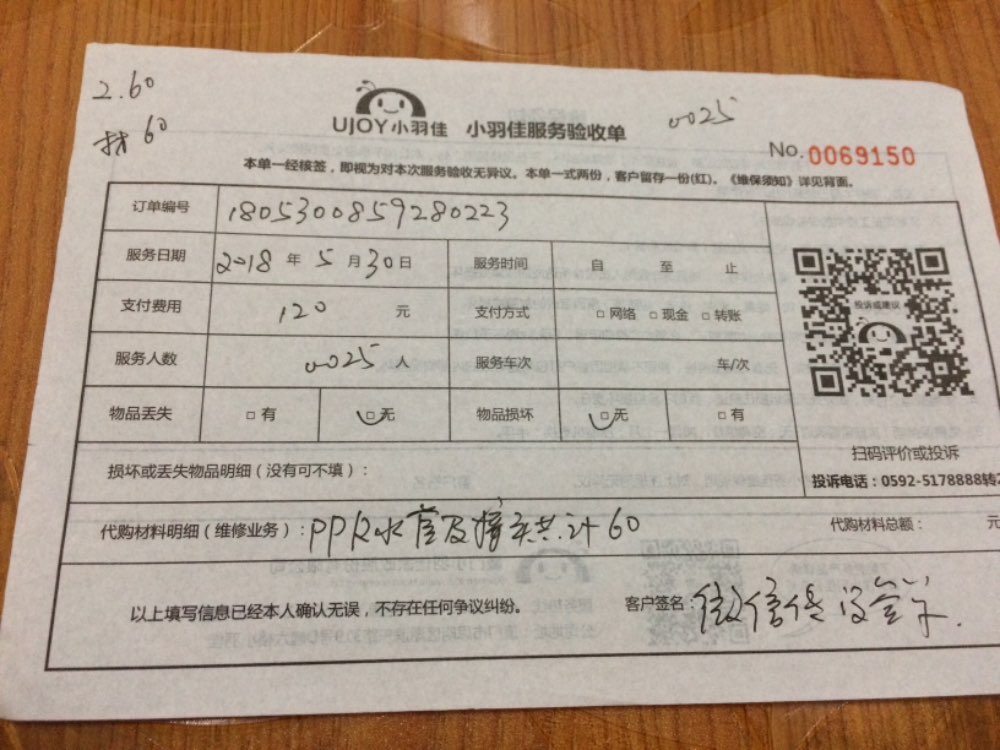 2.60
材 60
UJOY小羽佳 小羽佳服务验收单
0025
No.0069150
本单一经核签，即视为对本次服务验收无异议。本单一式两份，客户留存一份(红)。《维保须知》详见背面。
订单编号 1805300859280223
服务日期 2018 年 5 月 30 日 服务时间 自 至 止
支付费用 120 元 支付方式 □ 网络 □ 现金 □ 转账
服务人数 0025 人 服务车次 车/次
物品丢失 □ 有 □ 无 物品损坏 □ 无 □ 有
投诉或建议
扫码评价或投诉
投诉电话：0592-5178888转2
损坏或丢失物品明细（没有可不填）：
代购材料明细（维修业务）：PPR水管及接头共计60
代购材料总额： 元
以上填写信息已经本人确认无误，不存在任何争议纠纷。 客户签名：微信